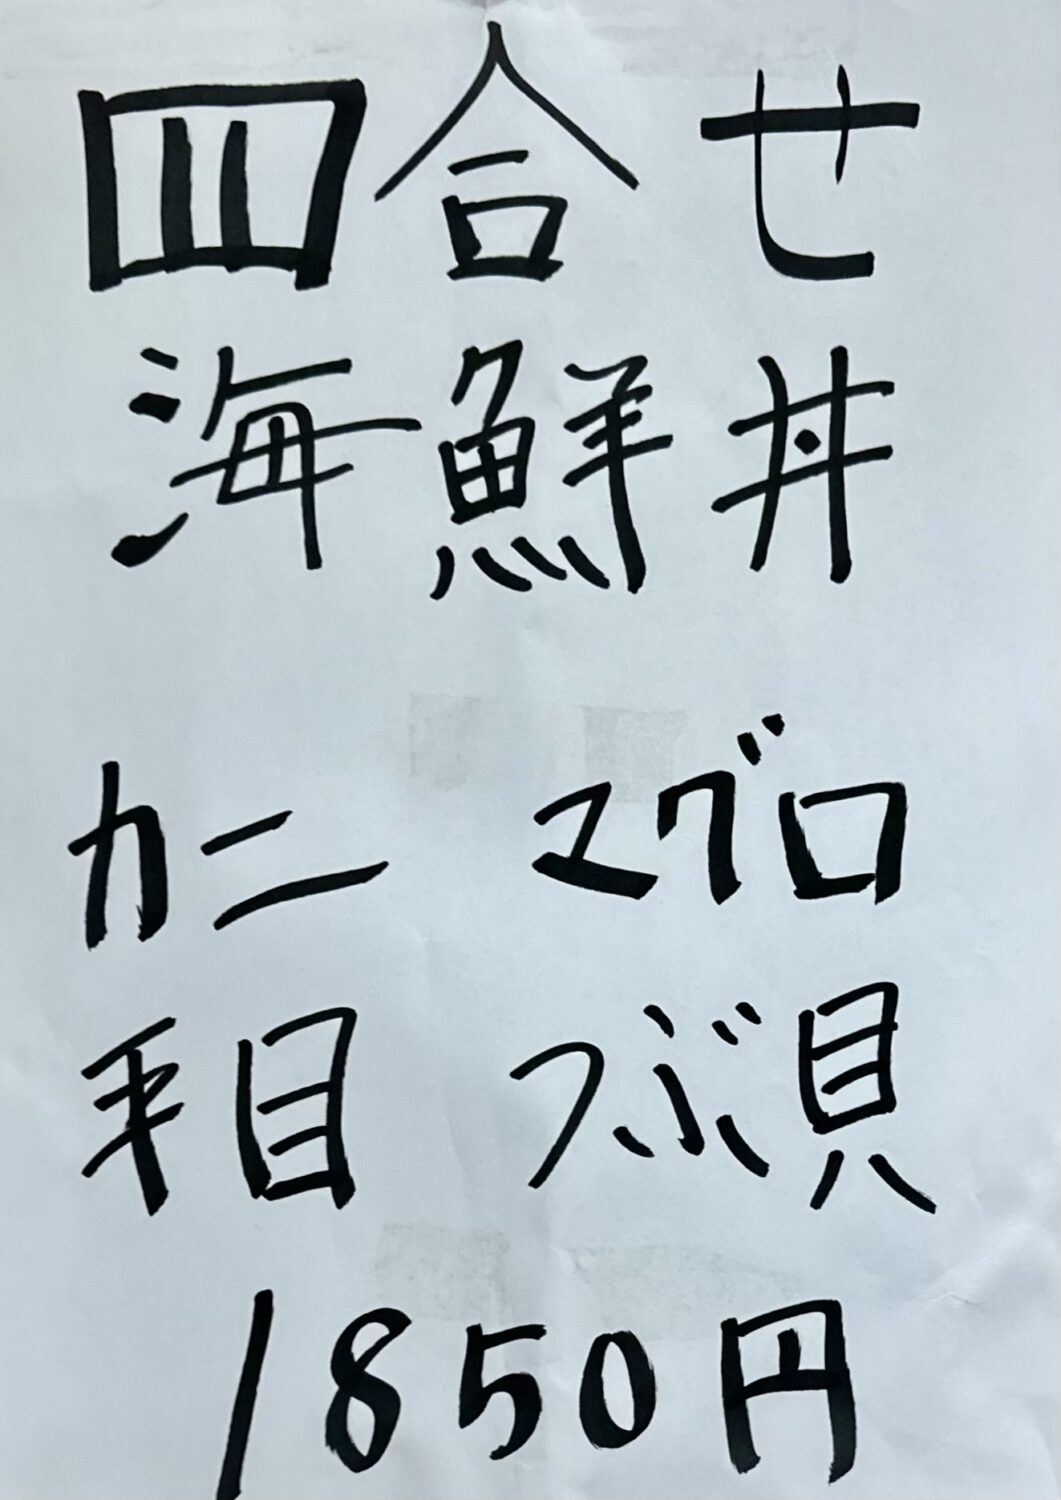 四合せ
海鮮丼
カニ マグロ
平目 つぶ貝
1850円